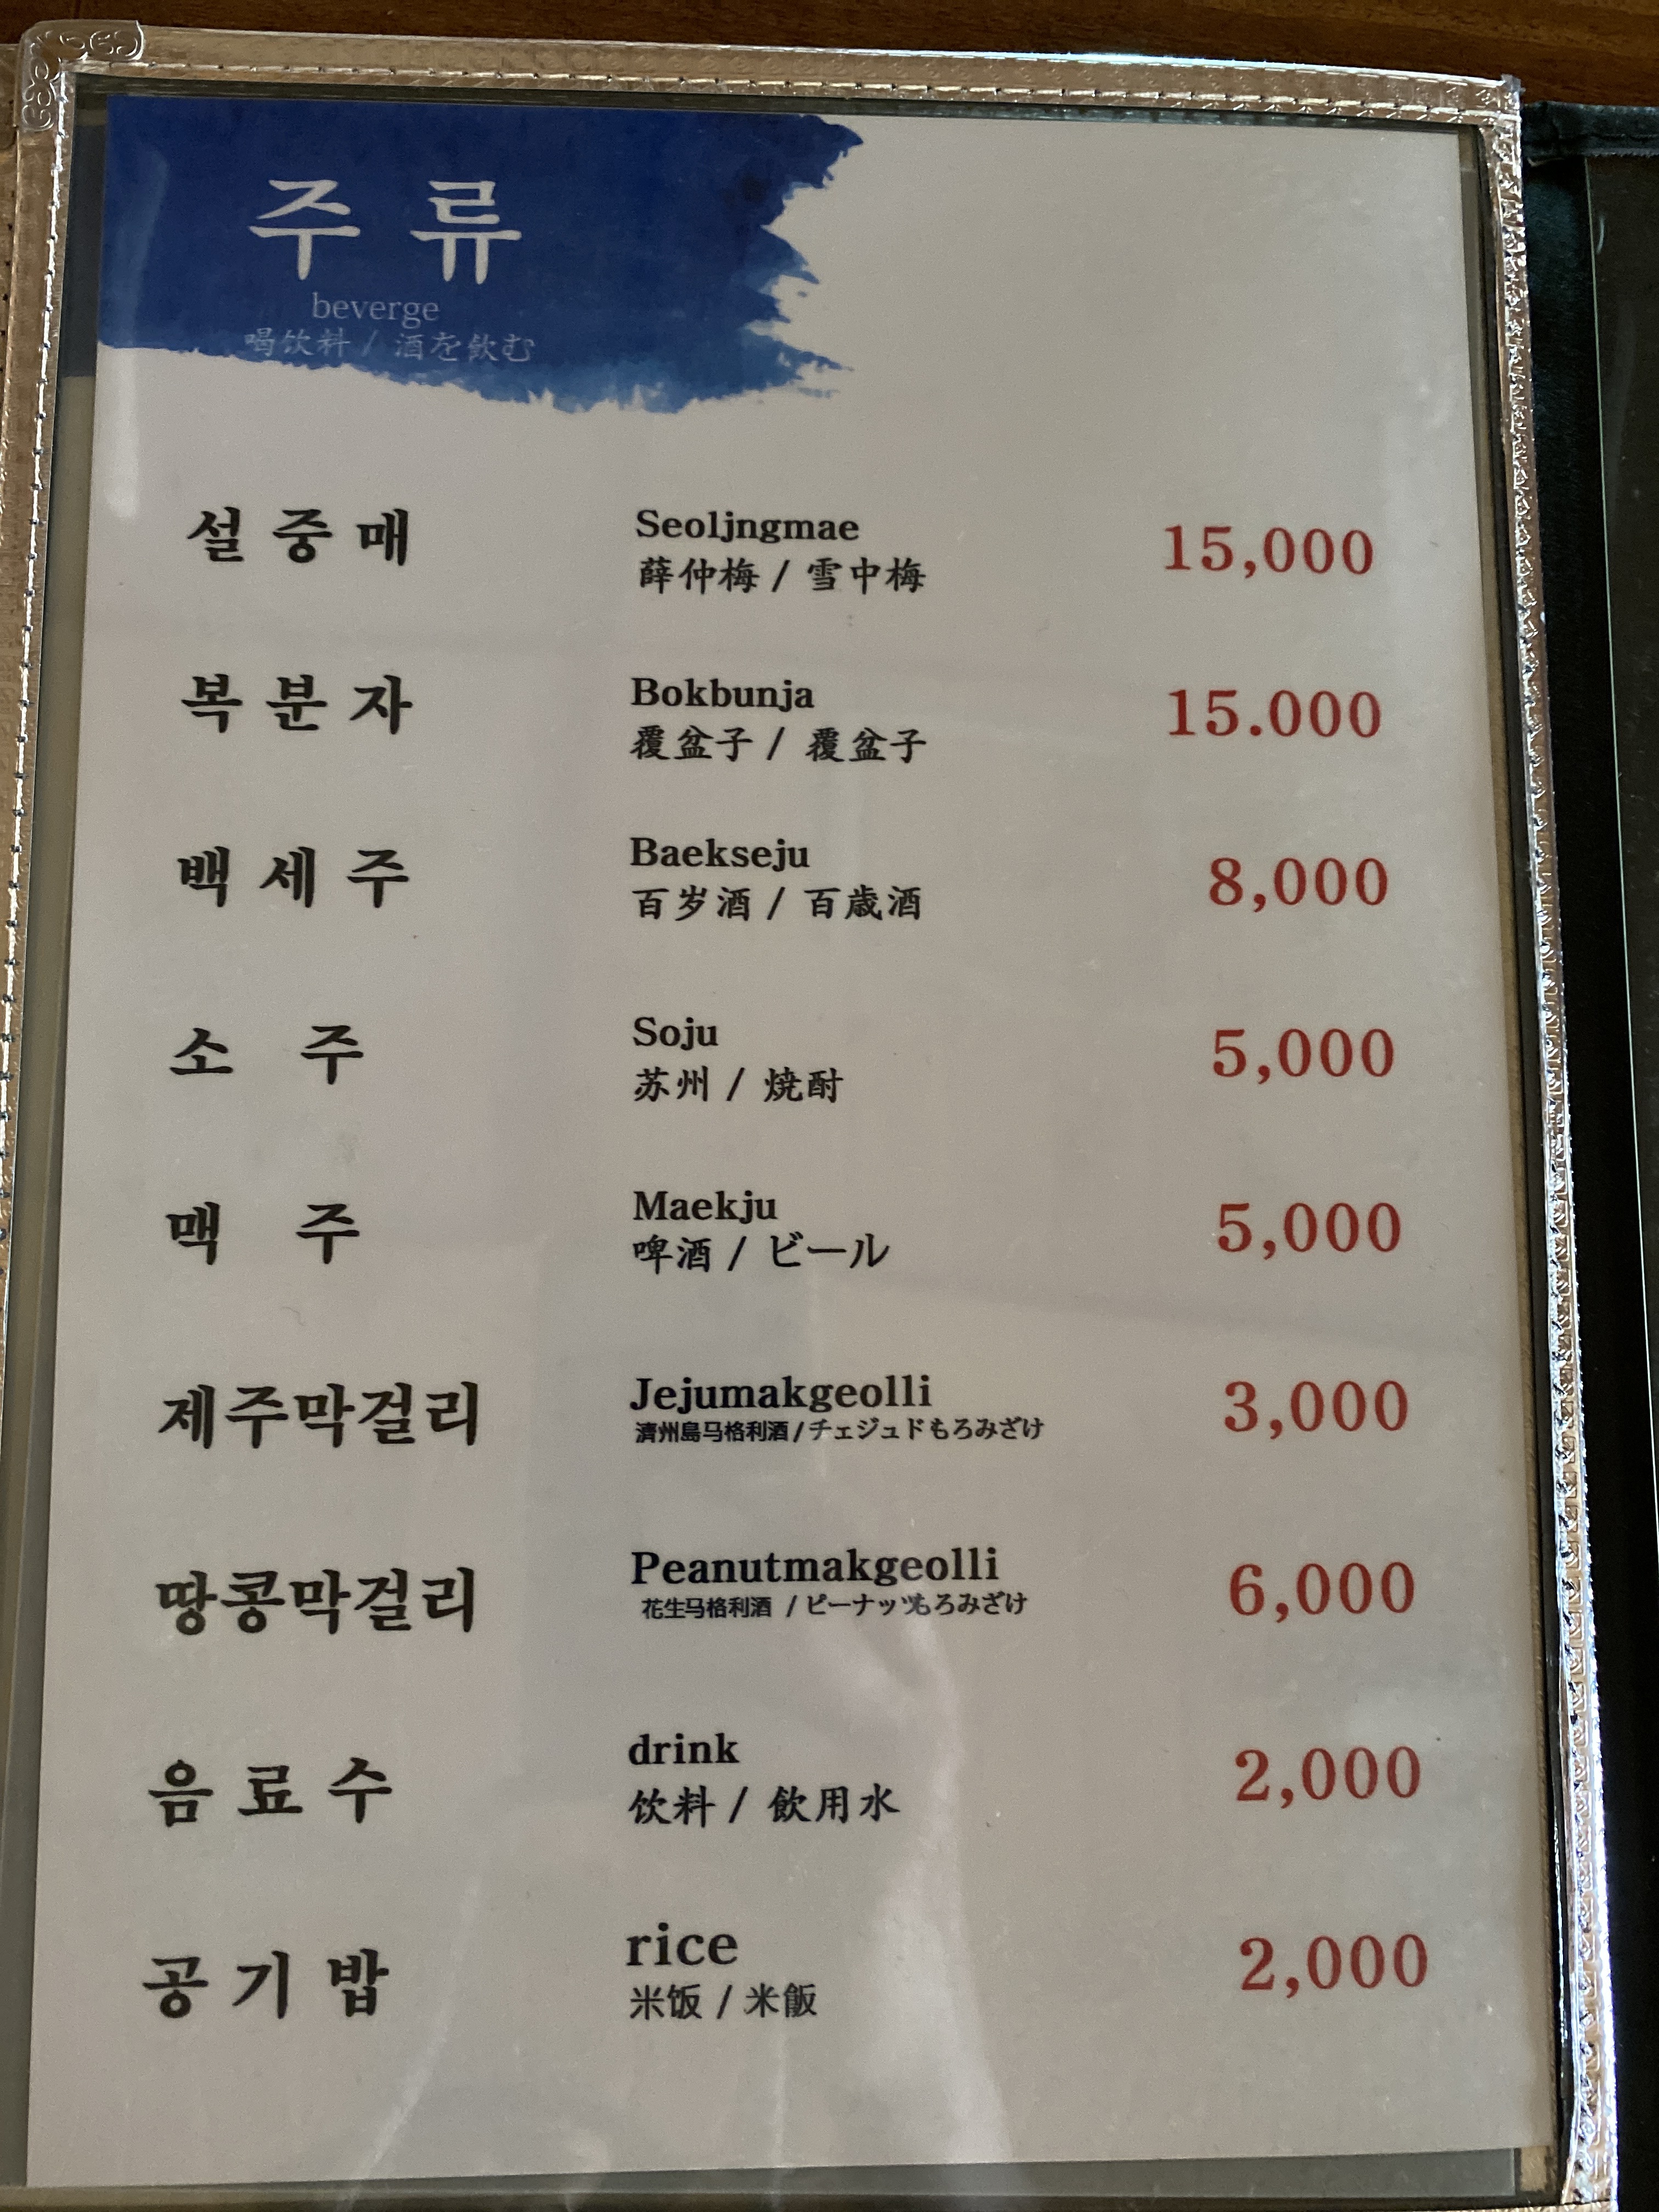 주 류
beverge
喝饮料 / 酒を飲む
설 중 매 Seoljngmae 15,000
薛仲梅 / 雪中梅
복 분 자 Bokbunja 15.000
覆盆子 / 覆盆子
백 세 주 Baekseju 8,000
百岁酒 / 百歳酒
소 주 Soju 5,000
苏州 / 焼酎
맥 주 Maekju 5,000
啤酒 / ビール
제주막걸리 Jejumakgeolli 3,000
濟州島马格利酒 / チェジュドもろみざけ
땅콩막걸리 Peanutmakgeolli 6,000
花生马格利酒 / ピーナッツもろみざけ
음 료 수 drink 2,000
饮料 / 飲用水
공 기 밥 rice 2,000
米饭 / 米飯